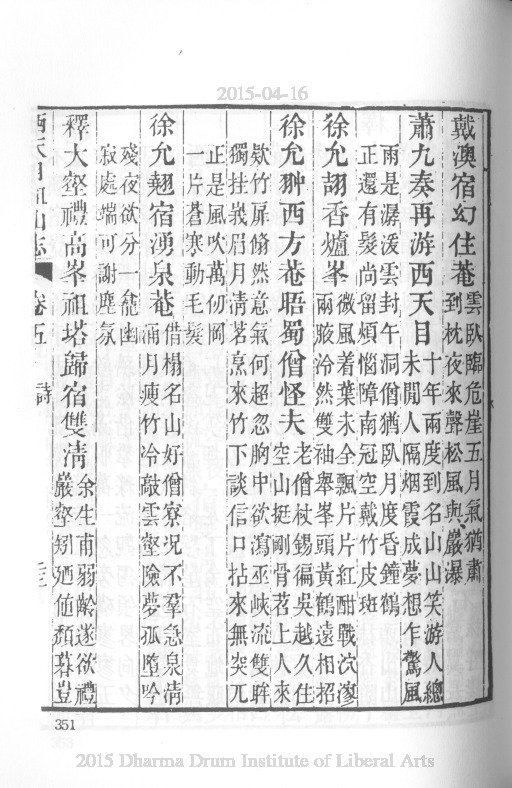 2015-04-16
戴澳宿幻住菴
雲臥臨危崖五月氣猶肅
到枕夜來聲松風與巖瀑
蕭九奏再游西天目
十年兩度到名山山笑游人總
未閒人隔烟霞成夢想乍驚風
雨是潺湲雲封午洞僧猶臥月度昏鐘鶴
正還有髮尚留煩惱障南冠空戴竹皮斑
徐允翃香爐峯
微風着葉未全飄片片紅酣戰泬漻
兩腋泠然雙袖舉峯頭黃鶴遠相招
徐允翀西方菴晤蜀僧怪夫
老僧杖錫徧吳越久住
空山挺剛骨茗上人來
欵竹扉翛然意氣何超忽胸中欲瀉巫峽流雙眸
獨挂峩眉月清茗烹來竹下談信口拈來無突兀
正是風吹萬仞岡
一片蒼寒動毛髮
徐允翹宿湧泉菴
借榻名山好僧寮况不羣急泉清
涌月瘦竹冷敲雲壑險夢孤墮吟
殘夜欲分一龕幽
寂處端可謝塵氛
釋大壑禮高峯祖塔歸宿雙清
余生甫弱齡遂欲禮
巖壑矧廼値頹暮豈
西天目祖山志
卷五
詩
三
351
2015 Dharma Drum Institute of Liberal Arts